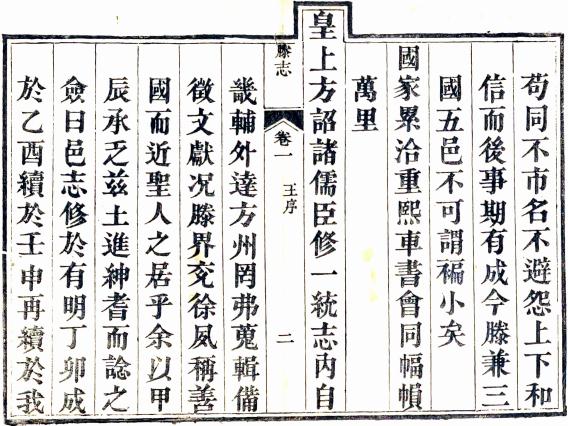 苟同不市名不避怨上下和
信而後事期有成今滕兼三
國五邑不可謂褊小矣
國家累洽重熙車書會同幅幀
萬里
皇上方詔諸儒臣修一統志內自
滕志
卷一
王序
二
畿輔外達方州罔弗蒐輯備
徵文獻况滕界兗徐夙稱善
國而近聖人之居乎余以甲
辰承乏兹土進紳耆而諗之
僉曰邑志修於有明丁卯成
於乙酉續於壬申再續於我